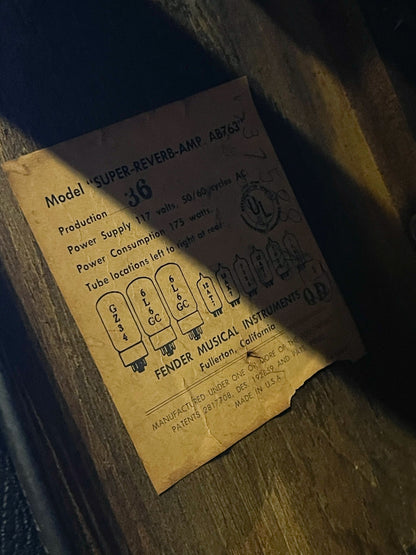 Model "SUPER-REVERB-AMP AB763"
Production 36
Power Supply 117 volts, 50/60 cycles AC
Power Consumption 175 watts
Tube locations left to right at rear
UL
GZ34 6L6GC 6L6GC
FENDER MUSICAL INSTRUMENTS
Fullerton, California
MANUFACTURED UNDER ONE OR MORE OF THE
PATENTS 2817708, DES. 192149 AND PAT.
MADE IN U.S.A.